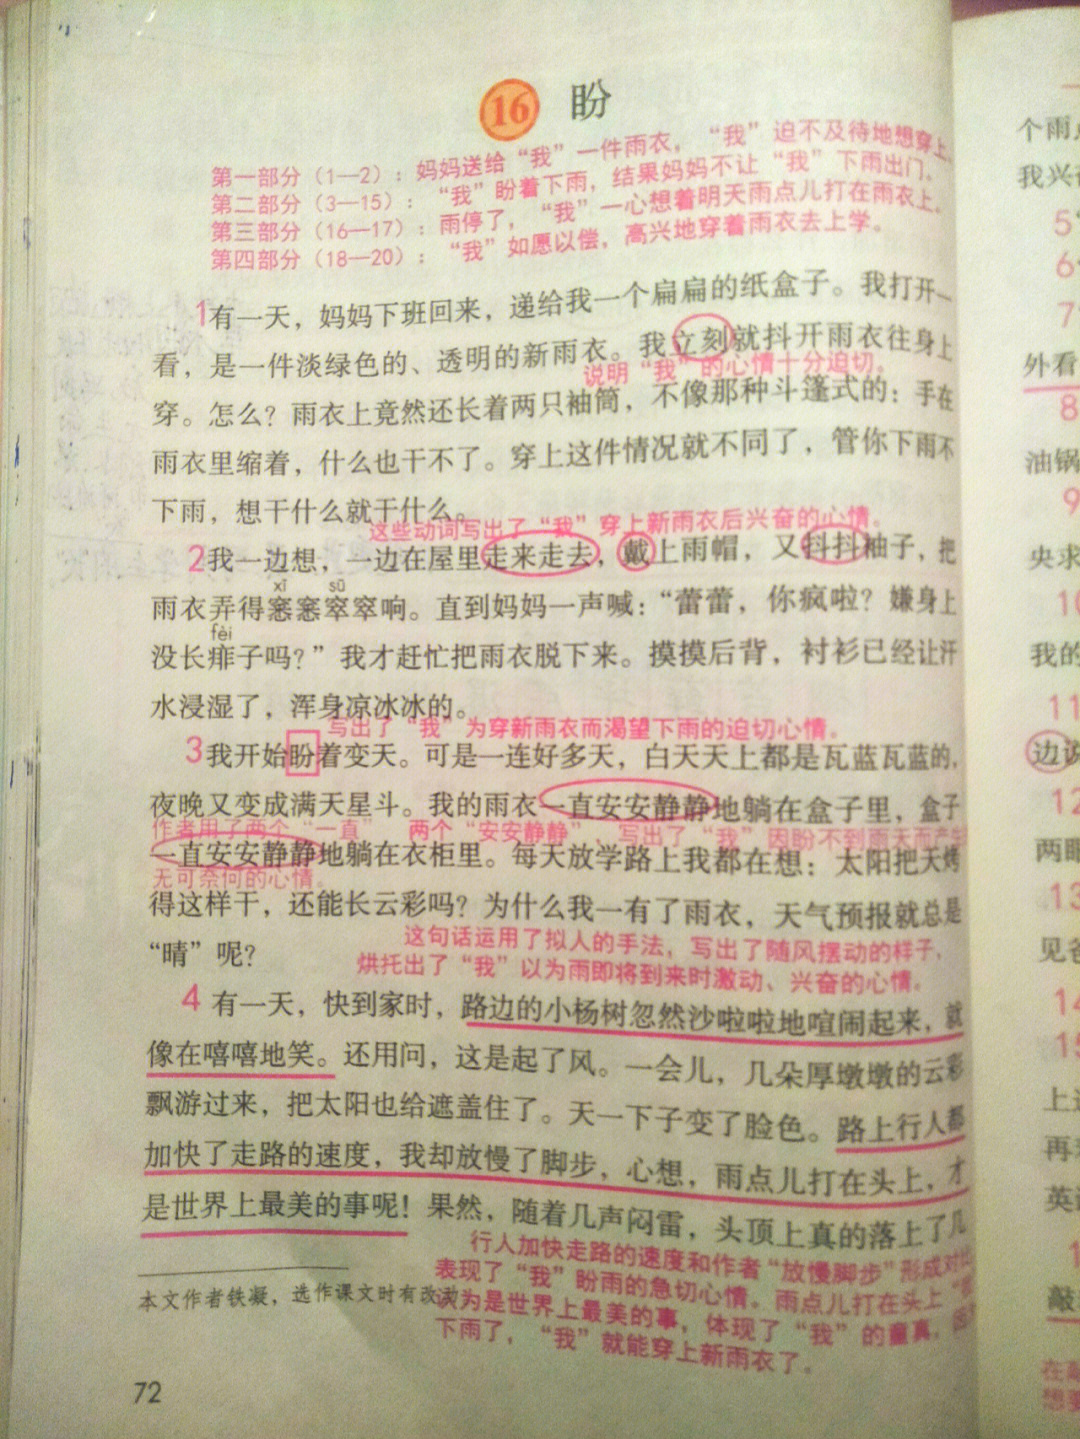 16 盼
第一部分（1—2）：妈妈送给“我”一件雨衣，“我”迫不及待地想穿上。
第二部分（3—15）：“我”盼着下雨，结果妈妈不让“我”下雨出门。
第三部分（16—17）：雨停了，“我”一心想着明天雨点儿打在雨衣上。
第四部分（18—20）：“我”如愿以偿，高兴地穿着雨衣去上学。
1有一天，妈妈下班回来，递给我一个扁扁的纸盒子。我打开一
看，是一件淡绿色的、透明的新雨衣。我立刻就抖开雨衣往身上
说明“我”的心情十分迫切。
穿。怎么？雨衣上竟然还长着两只袖筒，不像那种斗篷式的：手在
雨衣里缩着，什么也干不了。穿上这件情况就不同了，管你下雨不
下雨，想干什么就干什么。
这些动词写出了“我”穿上新雨衣后兴奋的心情。
2我一边想，一边在屋里走来走去，戴上雨帽，又抖抖袖子，把
xī sū
雨衣弄得窸窸窣窣响。直到妈妈一声喊：“蕾蕾，你疯啦？嫌身上
fèi
没长痱子吗？”我才赶忙把雨衣脱下来。摸摸后背，衬衫已经让汗
水浸湿了，浑身凉冰冰的。
写出了“我”为穿新雨衣而渴望下雨的迫切心情。
3我开始盼着变天。可是一连好多天，白天天上都是瓦蓝瓦蓝的，
夜晚又变成满天星斗。我的雨衣一直安安静静地躺在盒子里，盒子
作者用了两个“一直”　两个“安安静静”，写出了“我”因盼不到雨天而产生
一直安安静静地躺在衣柜里。每天放学路上我都在想：太阳把天烤
无可奈何的心情。
得这样干，还能长云彩吗？为什么我一有了雨衣，天气预报就总是
“晴”呢？
这句话运用了拟人的手法，写出了随风摆动的样子，
烘托出了“我”以为雨即将到来时激动、兴奋的心情。
4 有一天，快到家时，路边的小杨树忽然沙啦啦地喧闹起来，就
像在嘻嘻地笑。还用问，这是起了风。一会儿，几朵厚墩墩的云彩
飘游过来，把太阳也给遮盖住了。天一下子变了脸色。路上行人都
加快了走路的速度，我却放慢了脚步，心想，雨点儿打在头上，才
是世界上最美的事呢！果然，随着几声闷雷，头顶上真的落上了几
行人加快走路的速度和作者“放慢脚步”形成对比
表现了“我”盼雨的急切心情。雨点儿打在头上“我”
认为是世界上最美的事，体现了“我”的童真，因为
下雨了，“我”就能穿上新雨衣了。
本文作者铁凝，选作课文时有改动。
72
个雨点
我兴
5
6
7
外看
8
油锅
9
央求
10
我的
11
边说
12
两眼
13
见爸
14
15
上
再
英
1
敲
在
想要